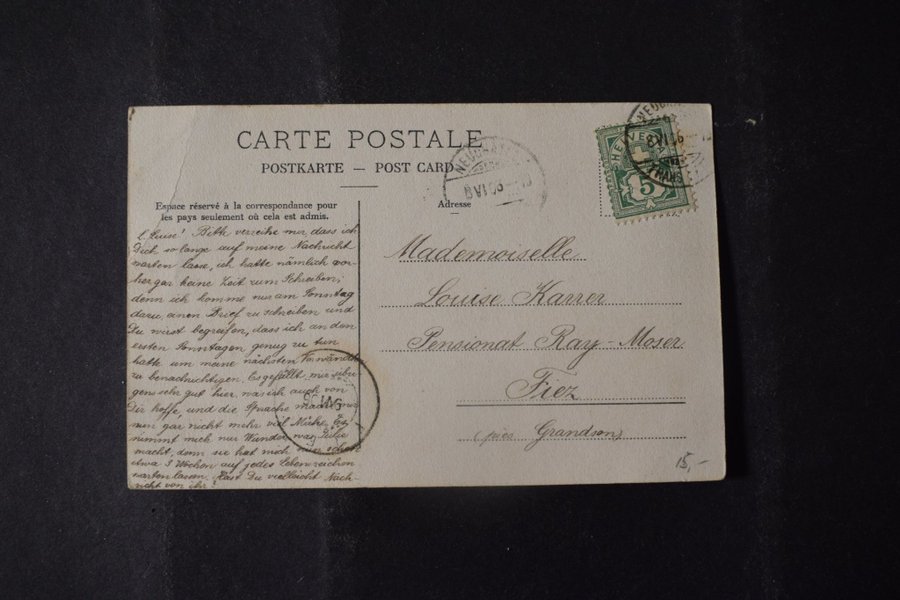 CARTE POSTALE
POSTKARTE — POST CARD
Espace réservé à la correspondance pour
les pays seulement où cela est admis.
Adresse
HELVETIA
5
8 VI 06
8 VI 06
L. Luise! Bitte verzeihe mir dass ich
Dich so lange auf meine Nachricht
warten lasse, ich hatte nämlich vor-
her gar keine Zeit zum Schreiben;
denn ich komme nur am Sonntag
dazu, einen Brief zu schreiben und
Du wirst begreifen, dass ich an den
ersten Sonntagen genug zu tun
hatte um meine nächsten Verwandten
zu benachrichtigen. Es gefällt mir übri-
gens sehr gut hier, was ich auch von
Dir hoffe, und die Sprache macht mir
nun gar nicht mehr viel Mühe. Es
nimmt mich nur Wunder was
macht, denn sie hat mich nun schon
etwa 3 Wochen auf jedes Lebenszeichen
warten lassen. Hast Du vielleicht Nach-
richt von ihr?
Mademoiselle
Louise Karrer
Pensionat Ray-Moser
Fiez
(près Grandson)
15,-